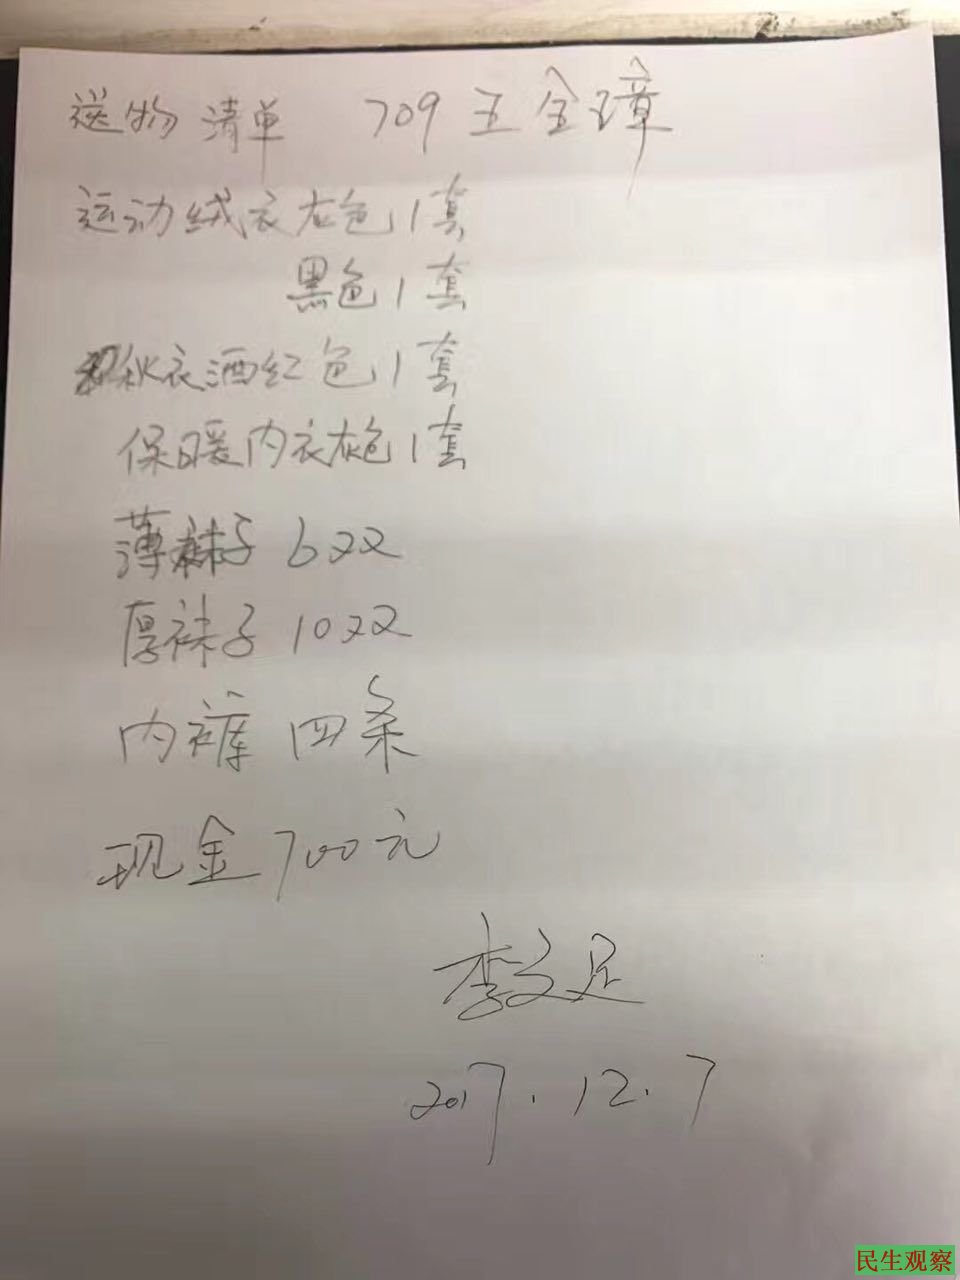 送物清单 709 王全璋
运动绒衣灰色1套
黑色1套
秋衣酒红色1套
保暖内衣灰色1套
薄袜子6双
厚袜子10双
内裤 四条
现金700元
李文足
2017.12.7
民生观察